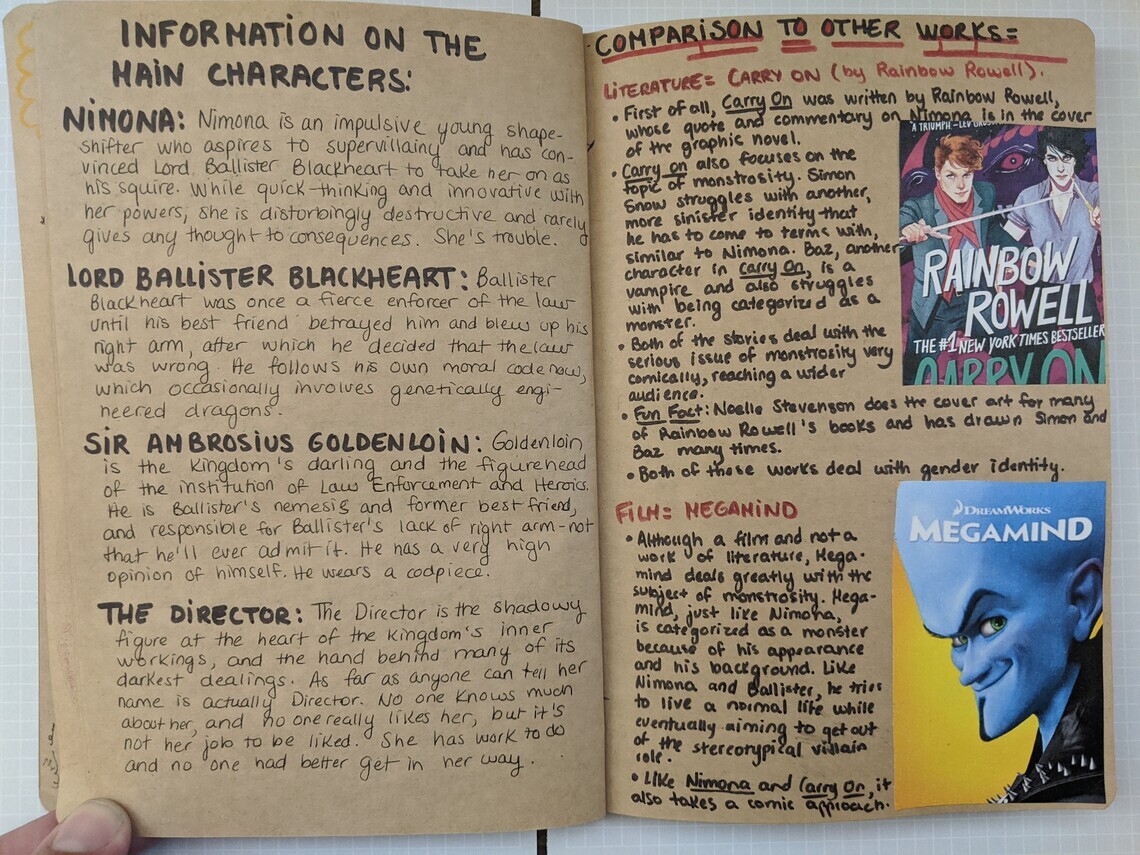 INFORMATION ON THE
MAIN CHARACTERS:
NIMONA: Nimona is an impulsive young shape-
shifter who aspires to supervillainy and has con-
vinced Lord Ballister Blackheart to take her on as
his squire. While quick-thinking and innovative with
her powers, she is distorbingly destructive and rarely
gives any thought to consequences. She's trouble.
LORD BALLISTER BLACKHEART: Ballister
Blackheart was once a fierce enforcer of the law
until his best friend betrayed him and blew up his
right arm, after which he decided that the law
was wrong. He follows his own moral code now,
which occasionally involves genetically engi-
neered dragons.
SIR AMBROSIUS GOLDENLOIN: Goldenloin
is the Kingdom's darling and the figurehead
of the institution of Law Enforcement and Heroics.
He is Ballister's nemesis and former best friend,
and responsible for Ballister's lack of right arm-not
that he'll ever admit it. He has a very high
opinion of himself. He wears a codpiece.
THE DIRECTOR: The Director is the shadowy
figure at the heart of the Kingdom's inner
workings, and the hand behind many of its
darkest dealings. As far as anyone can tell her
name is actually Director. No one knows much
about her, and no one really likes her, but it's
not her job to be liked. She has work to do
and no one had better get in her way.
COMPARISON TO OTHER WORKS=
LITERATURE= CARRY ON (by Rainbow Rowell).
• First of all, Carry On was written by Rainbow Rowell,
whose quote and commentary on Nimona is in the cover
of the graphic novel.
• Carry on also focuses on the
topic of monstrosity. Simon
Snow struggles with another,
more sinister identity that
he has to come to terms with,
similar to Nimona. Baz, another
character in Carry On, is a
vampire and also struggles
with being categorized as a
monster.
• Both of the stories deal with the
serious issue of monstrosity very
comically, reaching a wider
audience.
• Fun Fact: Noelle Stevenson does the cover art for many
of Rainbow Rowell's books and has drawn Simon and
Baz many times.
• Both of these works deal with gender identity.
A TRIUMPH -LEV
RAINBOW
ROWELL
THE #1 NEW YORK TIMES BESTSELLER
CARRY ON
FILM= MEGAMIND
• Although a film and not a
work of literature, Mega-
mind deals greatly with the
subject of monstrosity. Mega-
mind, just like Nimona,
is categorized as a monster
because of his appearance
and his background. Like
Nimona and Ballister, he tries
to live a normal life while
eventually aiming to get out
of the stereotypical villain
role.
• Like Nimona and Carry On, it
also takes a comic approach.
DREAMWORKS
MEGAMIND